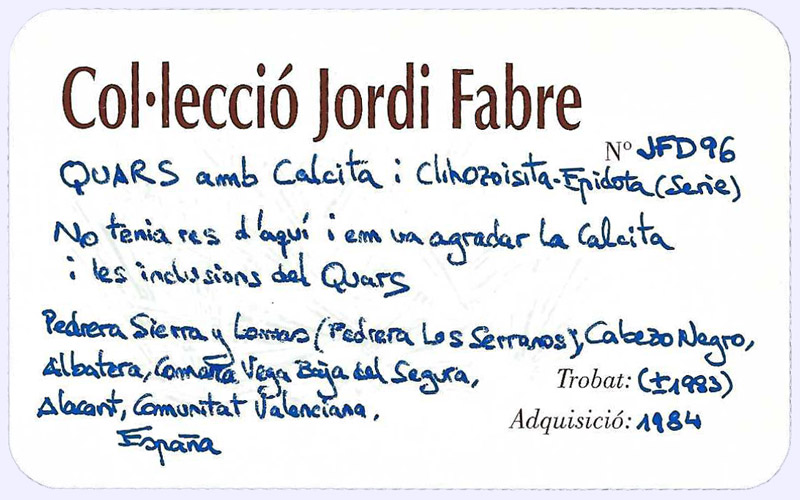 Col·lecció Jordi Fabre
Nº JFD96
QUARS amb Calcita i Clinozoisita-Epidota (Serie)
No tenia res d'aquí i em va agradar la Calcita
i les inclusions del Quars
Pedrera Sierra y Lomas (Pedrera Los Serranos), Cabezo Negro,
Albatera, Comarca Vega Baja del Segura,
Trobat: (±1983)
Alacant, Comunitat Valenciana,
Adquisició: 1984
España